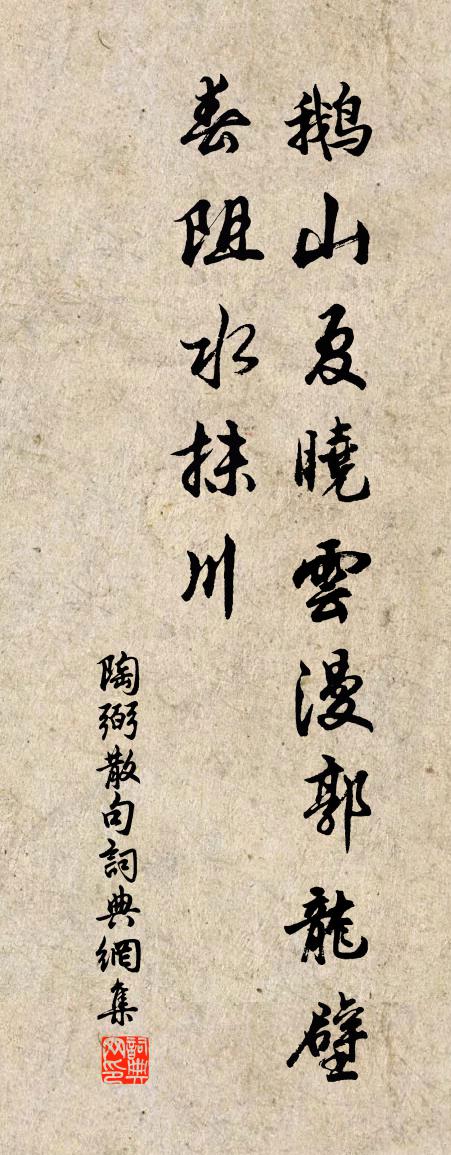 鵝山夏曉雲漫郭龍壁
春阻水抹川
陶弼散句詞典網集
詞典網印